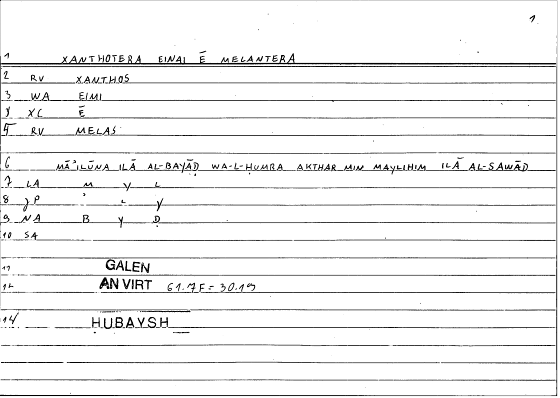 1
1 XANTHOTERA EINAI Ē MELANTERA
2 RV XANTHOS
3 WA EIMI
4 XC Ē
5 RV MELAS
6 MĀʾILŪNA ILĀ AL-BAYĀḌ WA-L-ḤUMRA AKTHAR MIN MAYLIHIM ILĀ AL-SAWĀD
7 LA M Y L
8 JP ʾ L Y
9 NA B Y Ḍ
10 SA
11 GALEN
12 AN VIRT 61.7F = 30.19
14 ḤUBAYSH